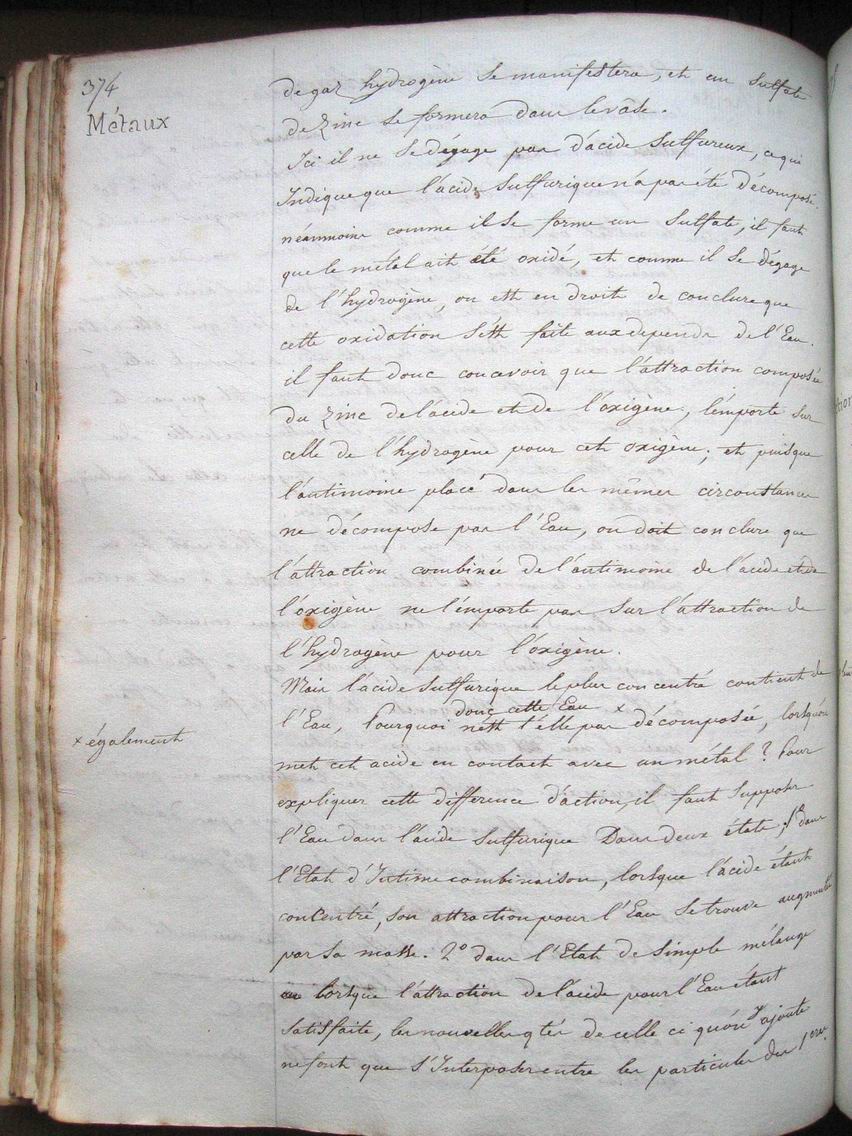 374
Métaux
de gaz hydrogène se manifestera, et un sulfate
de Zinc se formera dans le vâse.
Ici il ne se dégage pas d'acide sulfureux, ce qui
Indique que l'acide sulfurique n'a pas été décomposé.
néanmoins comme il se forme un sulfate, il faut
que le métal ait été oxidé, et comme il se dégage
de l'hydrogène, on est en droit de conclure que
cette oxidation s'est faite aux depends de l'Eau.
il faut donc concevoir que l'attraction composée
du Zinc de l'acide et de l'oxigène, l'emporte sur
celle de l'hydrogène pour cet oxigène; et puisque
l'antimoine placé dans les mêmes circonstances
ne décompose pas l'Eau, on doit conclure que
l'attraction combinée de l'antimoine de l'acide et de
l'oxigène ne l'emporte pas sur l'attraction de
l'hydrogène pour l'oxigène.
Mais l'acide sulfurique le plus concentré contient de
donc cette Eau x
l'Eau, Pourquoi n'est t'elle pas décomposée, lorsqu'on
x également
met cet acide en contact avec un métal? Pour
expliquer cette différence d'action, il faut supposer
l'Eau dans l'acide sulfurique Dans deux états; 1º dans
l'Etat d'Intime combinaison, lorsque l'acide étant
concentré, son attraction pour l'Eau se trouve augmentée
par sa masse. 2º dans l'Etat de simple mélange
lorsque l'attraction de l'acide pour l'Eau étant
satisfaite, les nouvelles qtés de celle ci qu'on y ajoute
ne font que s'Interposer entre les particules des 1eres.